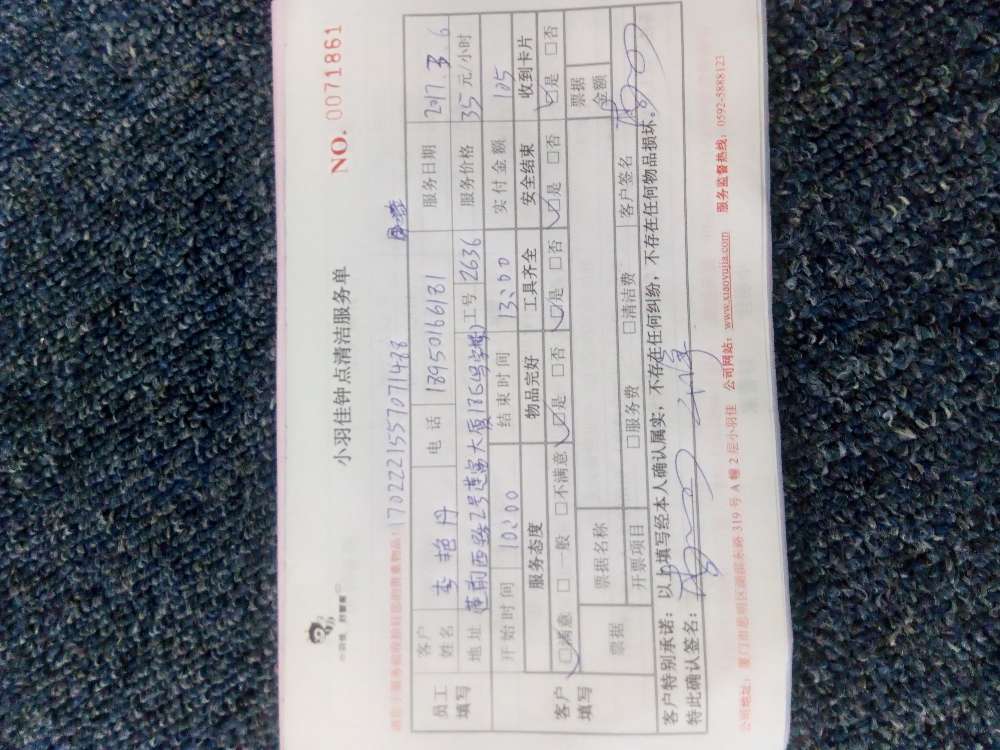 小羽佳钟点清洁服务单
NO. 0071861
17022215570711488
员工填写
客户姓名 李艳丹 电话 18950166181 服务日期 2017.3.6
地址 莲前西路2号莲富大厦 工号 2636 服务价格 35元/小时
开始时间 10:00 结束时间 13:00 实付金额 105
客户填写
服务态度 物品完好 工具齐全 安全结束 收到卡片
□满意 □一般 □不满意 □是 □否 □是 □否 □是 □否 □是 □否
票据 票据名称 票据金额
开票项目 □服务费 □清洁费 客户签名
客户特别承诺：以上填写经本人确认属实，不存在任何纠纷，不存在任何物品损坏。
特此确认签名：
公司地址：厦门市思明区湖滨东路319号A幢2层小羽佳 公司网站：www.xiaoyujia.com 服务监督热线：0592-5888123